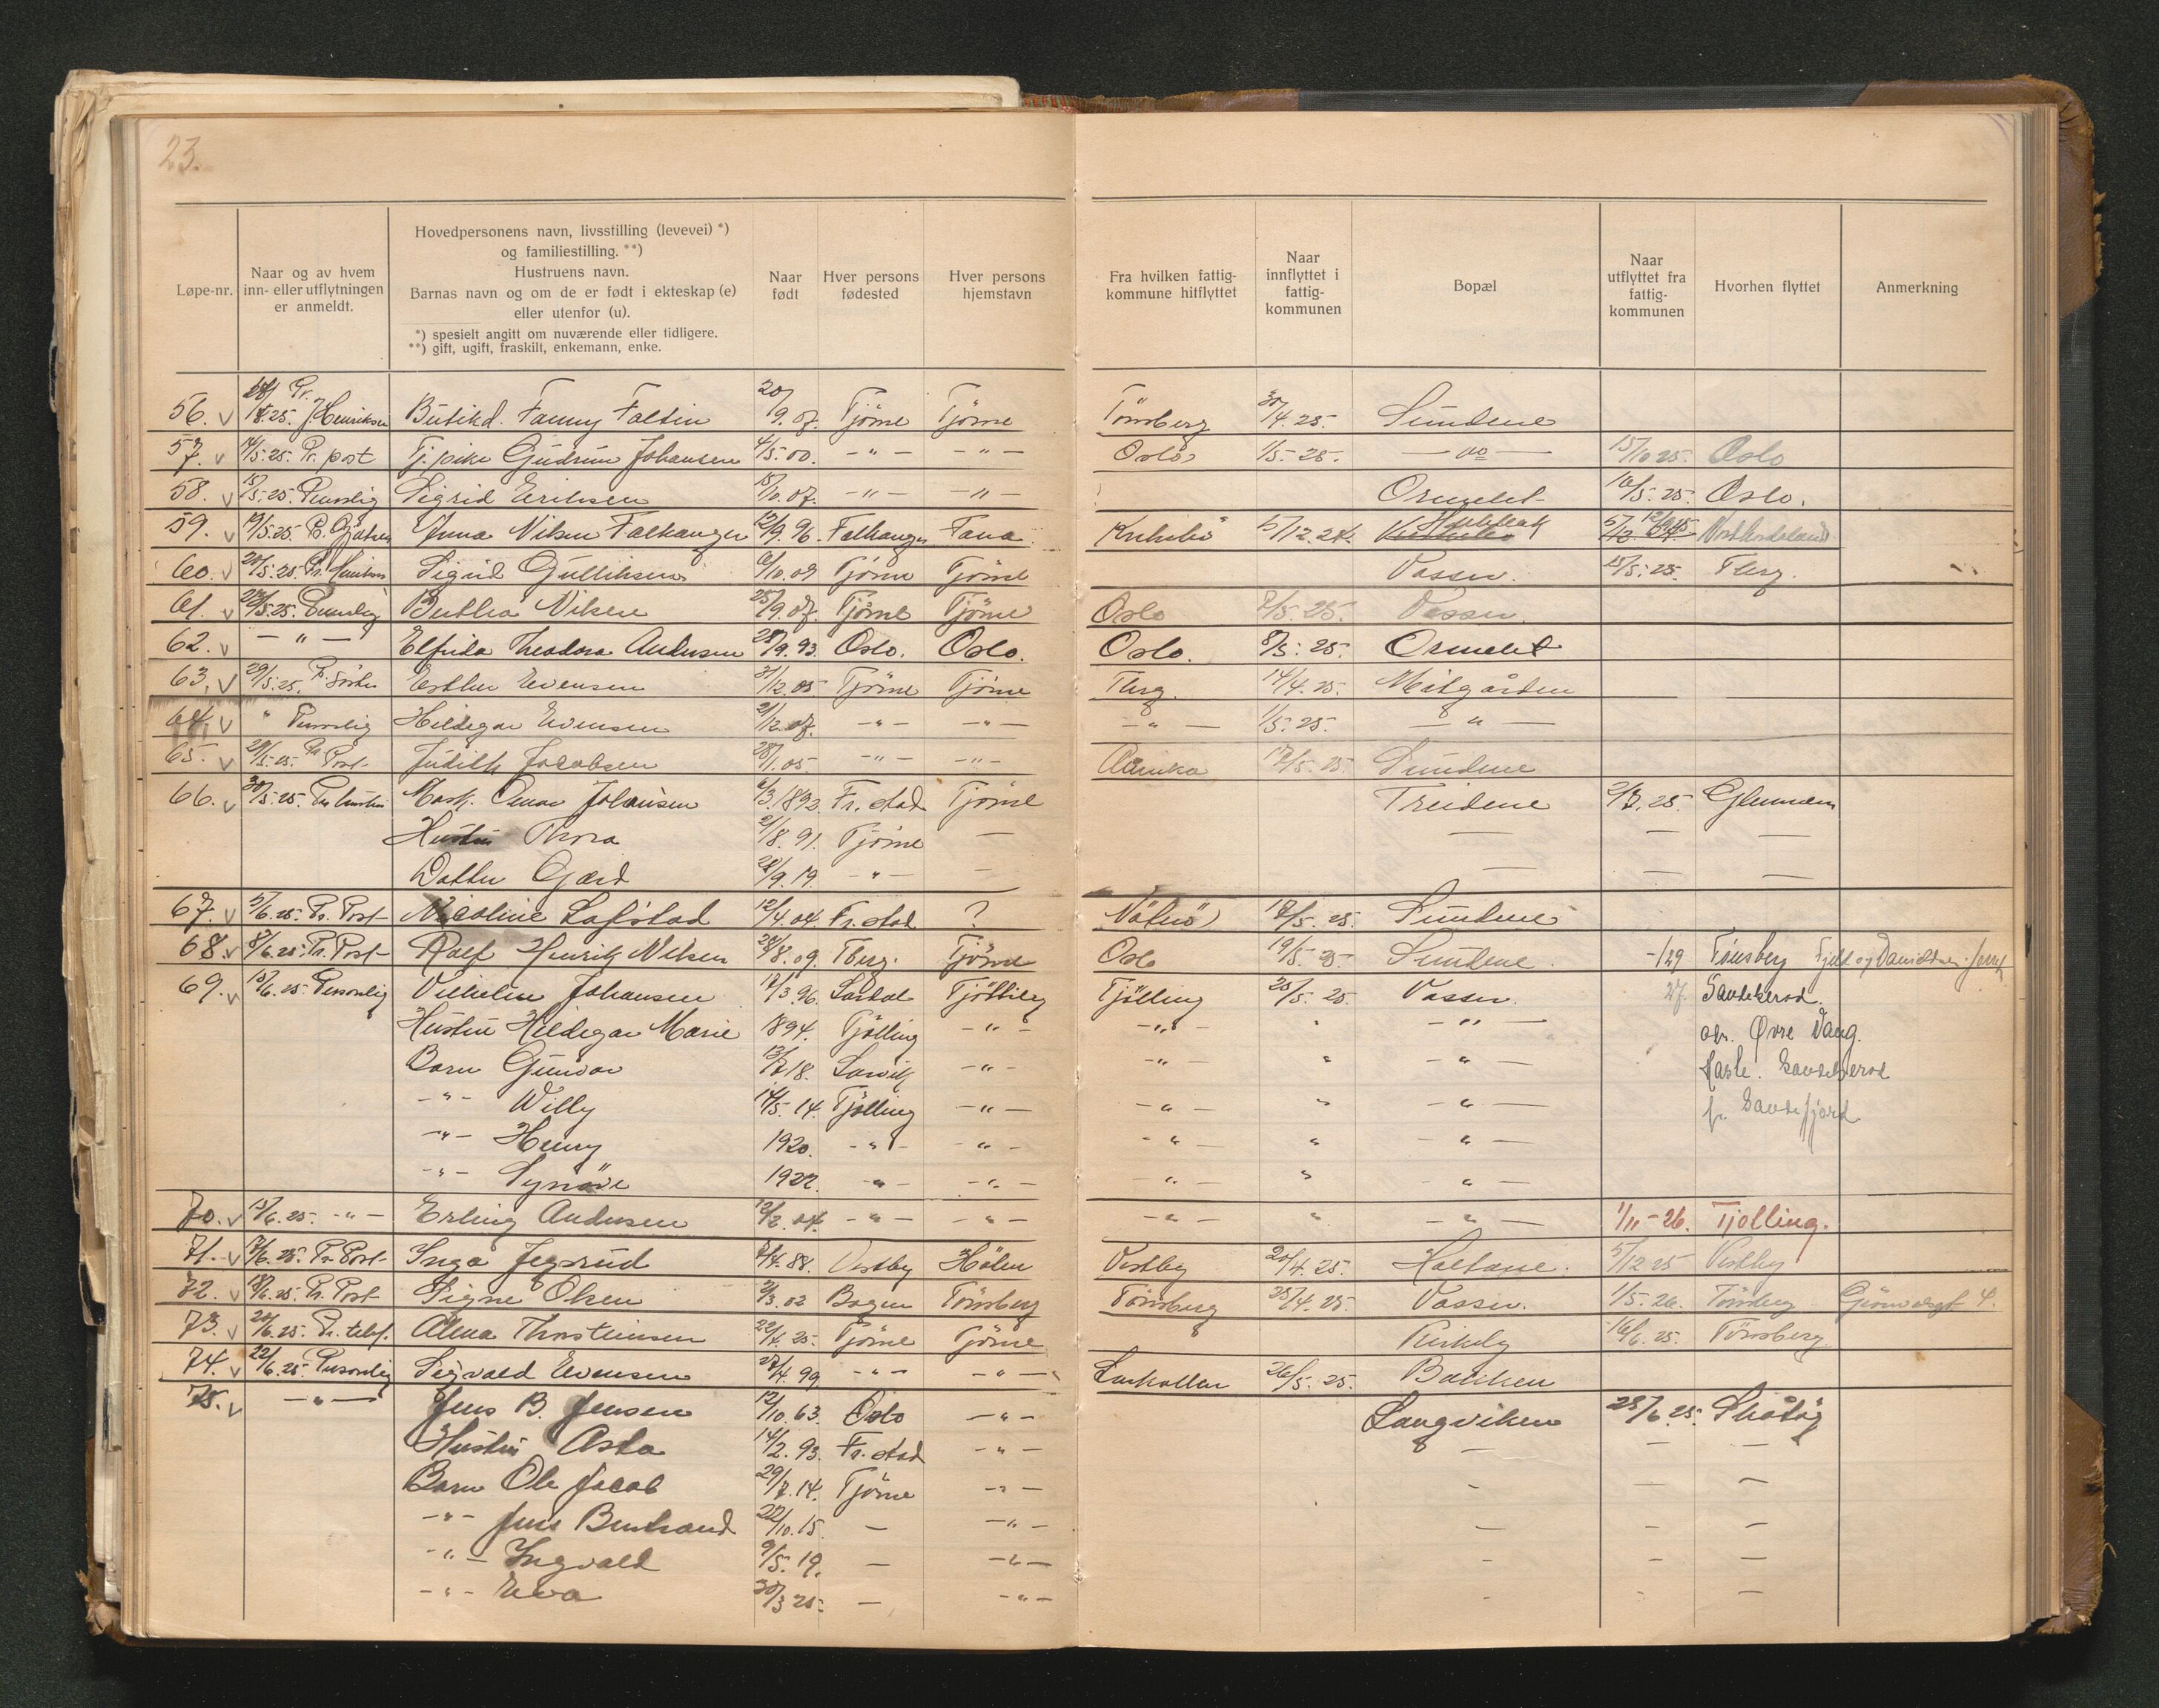 23.
Løpe-nr.
Naar og av hvem
inn- eller utflytningen
er anmeldt.
Hovedpersonens navn, livsstilling (levevei) *)
og familiestilling. **)
Hustruens navn.
Barnas navn og om de er født i ekteskap (e)
eller utenfor (u).
*) spesielt angitt om nuværende eller tidligere.
**) gift, ugift, fraskilt, enkemann, enke.
Naar
født
Hver persons
fødested
Hver persons
hjemstavn
Fra hvilken fattig-
kommune hitflyttet
Naar
innflyttet i
fattig-
kommunen
Bopæl
Naar
utflyttet fra
fattig-
kommunen
Hvorhen flyttet
Anmerkning
56. v Pr. J. Henriksen Butikd. Fanny Faltin 20/9.07. Tjöme Tjöme Tönsberg 30/4.25. Sundene
57. v 14/5.25. Pr. post Tj.pike Gudrun Johansen 4/5.00. -"- -"- Oslo 1/5-25. 15/10 25. Oslo
58. v 15/5.25. Personlig Sigrid Eriksen 15/10.07. -"- -"- Ormelet 16/5.25. Oslo.
59. v 19/5.25. Inna Nilsen Falkanger 12/9.96. Falkanger Fana 5/12.24.
60. v 20/5.25. Sigrid Gulliksen 6/10.09 Tjöme Tjöme Vasser. 15/5.25. Tbrg.
61. v Personlig Bertha Nilsen 25/9.07. Tjöme Tjöme Oslo 7/5.25. Vasser.
62. v -"- Elfrida Theodora Andersen 28/9.93. Oslo. Oslo. Oslo. 8/5.25. Ormelet
63. v 29/5.25. Esther Evensen 31/12.05 Tjöme Tjöme Tbrg. 14/4.25. Mågården
64. v " Personlig Hildegar Evensen 21/12.07. -"- -"- -"- 1/5.25. -"-
65. v 29/5.25. Pr Post Judith Jacobsen 28/1.05 -"- -"- 17/5.25. Sundene
66. v 30/5.25. Mask. Omar Johansen 6/3.1892. Fr.stad Tjöme Treidene 2/7.25. Glemmen
Hustru Thora 21/8.91. Tjöme — — — —
Datter Gjærd 28/9.19. -"- — — — —
67. v 5/6.25. Pr. Post Nicoline Lafstad 12/4.04. Fr.stad ? Nötterö 17/5.25. Sundene
68. v 8/6.25. Pr. Post Rolf Henrik Nilsen 28/8.09. Tbrg. Tjöme Oslo 19/5.25. Sundene. -129 Tönsberg
69. v 15/6.25. Personlig Vilhelm Johansen 17/3.96. Tjölling Tjölling 25/5.25. Vasser. 27. Sandeherod.
Hustru Hildegar Marie 1894. Tjölling -"- -"- " -"- Øvre Vang.
Barn Gunvor 13/7 18. Larvik -"- -"- " -"- Hasle. Sandeherod
-"- Willy 14/5.14. Tjölling -"- -"- " -"- Sandefjord
-"- Henry 1920. -"- -"- -"- " -"-
-"- Synöve 1922. -"- -"- -"- " -"-
70. v 15/6.25. -"- Erling Andersen 12/2.04. -"- -"- -"- " -"- 1/11-26. Tjölling.
71. v Pr. Post Inga Jegsrud 7/4.88. Vestby Hölen Vestby 20/4.25. Holtane. 5/12 25 Vestby
72. v 18/6.25. Pr. Post Signe Olsen 2/3.02 Bogen Tönsberg Tönsberg 25/4.25. Vasser. 1/5.26. Tönsberg 4.
73. v 20/6.25. Pr. telef. Alma Thorsteinsen Tjöme Tjöme Kirkeby 16/6.25. Tönsberg
74. v 22/6.25 Personlig Sigvald Evensen 27/4.99. -"- -"- Larkollen 26/5.25. Bakken
75. v -"- Jens B. Jensen 12/10.63. Oslo -"- Langviken 25/6.25. Skåtöy
Hustru Asta 14/2.93. Fr.stad -"- — — —
Barn Ole Jacob 29/7.14. Tjöme -"- - —
-"- Jens Bertrand 22/10.15. — -"- — - —
-"- Ingvald 9/5.19. — -"- - - —
-"- Eva 30/3 25. — -"- - —